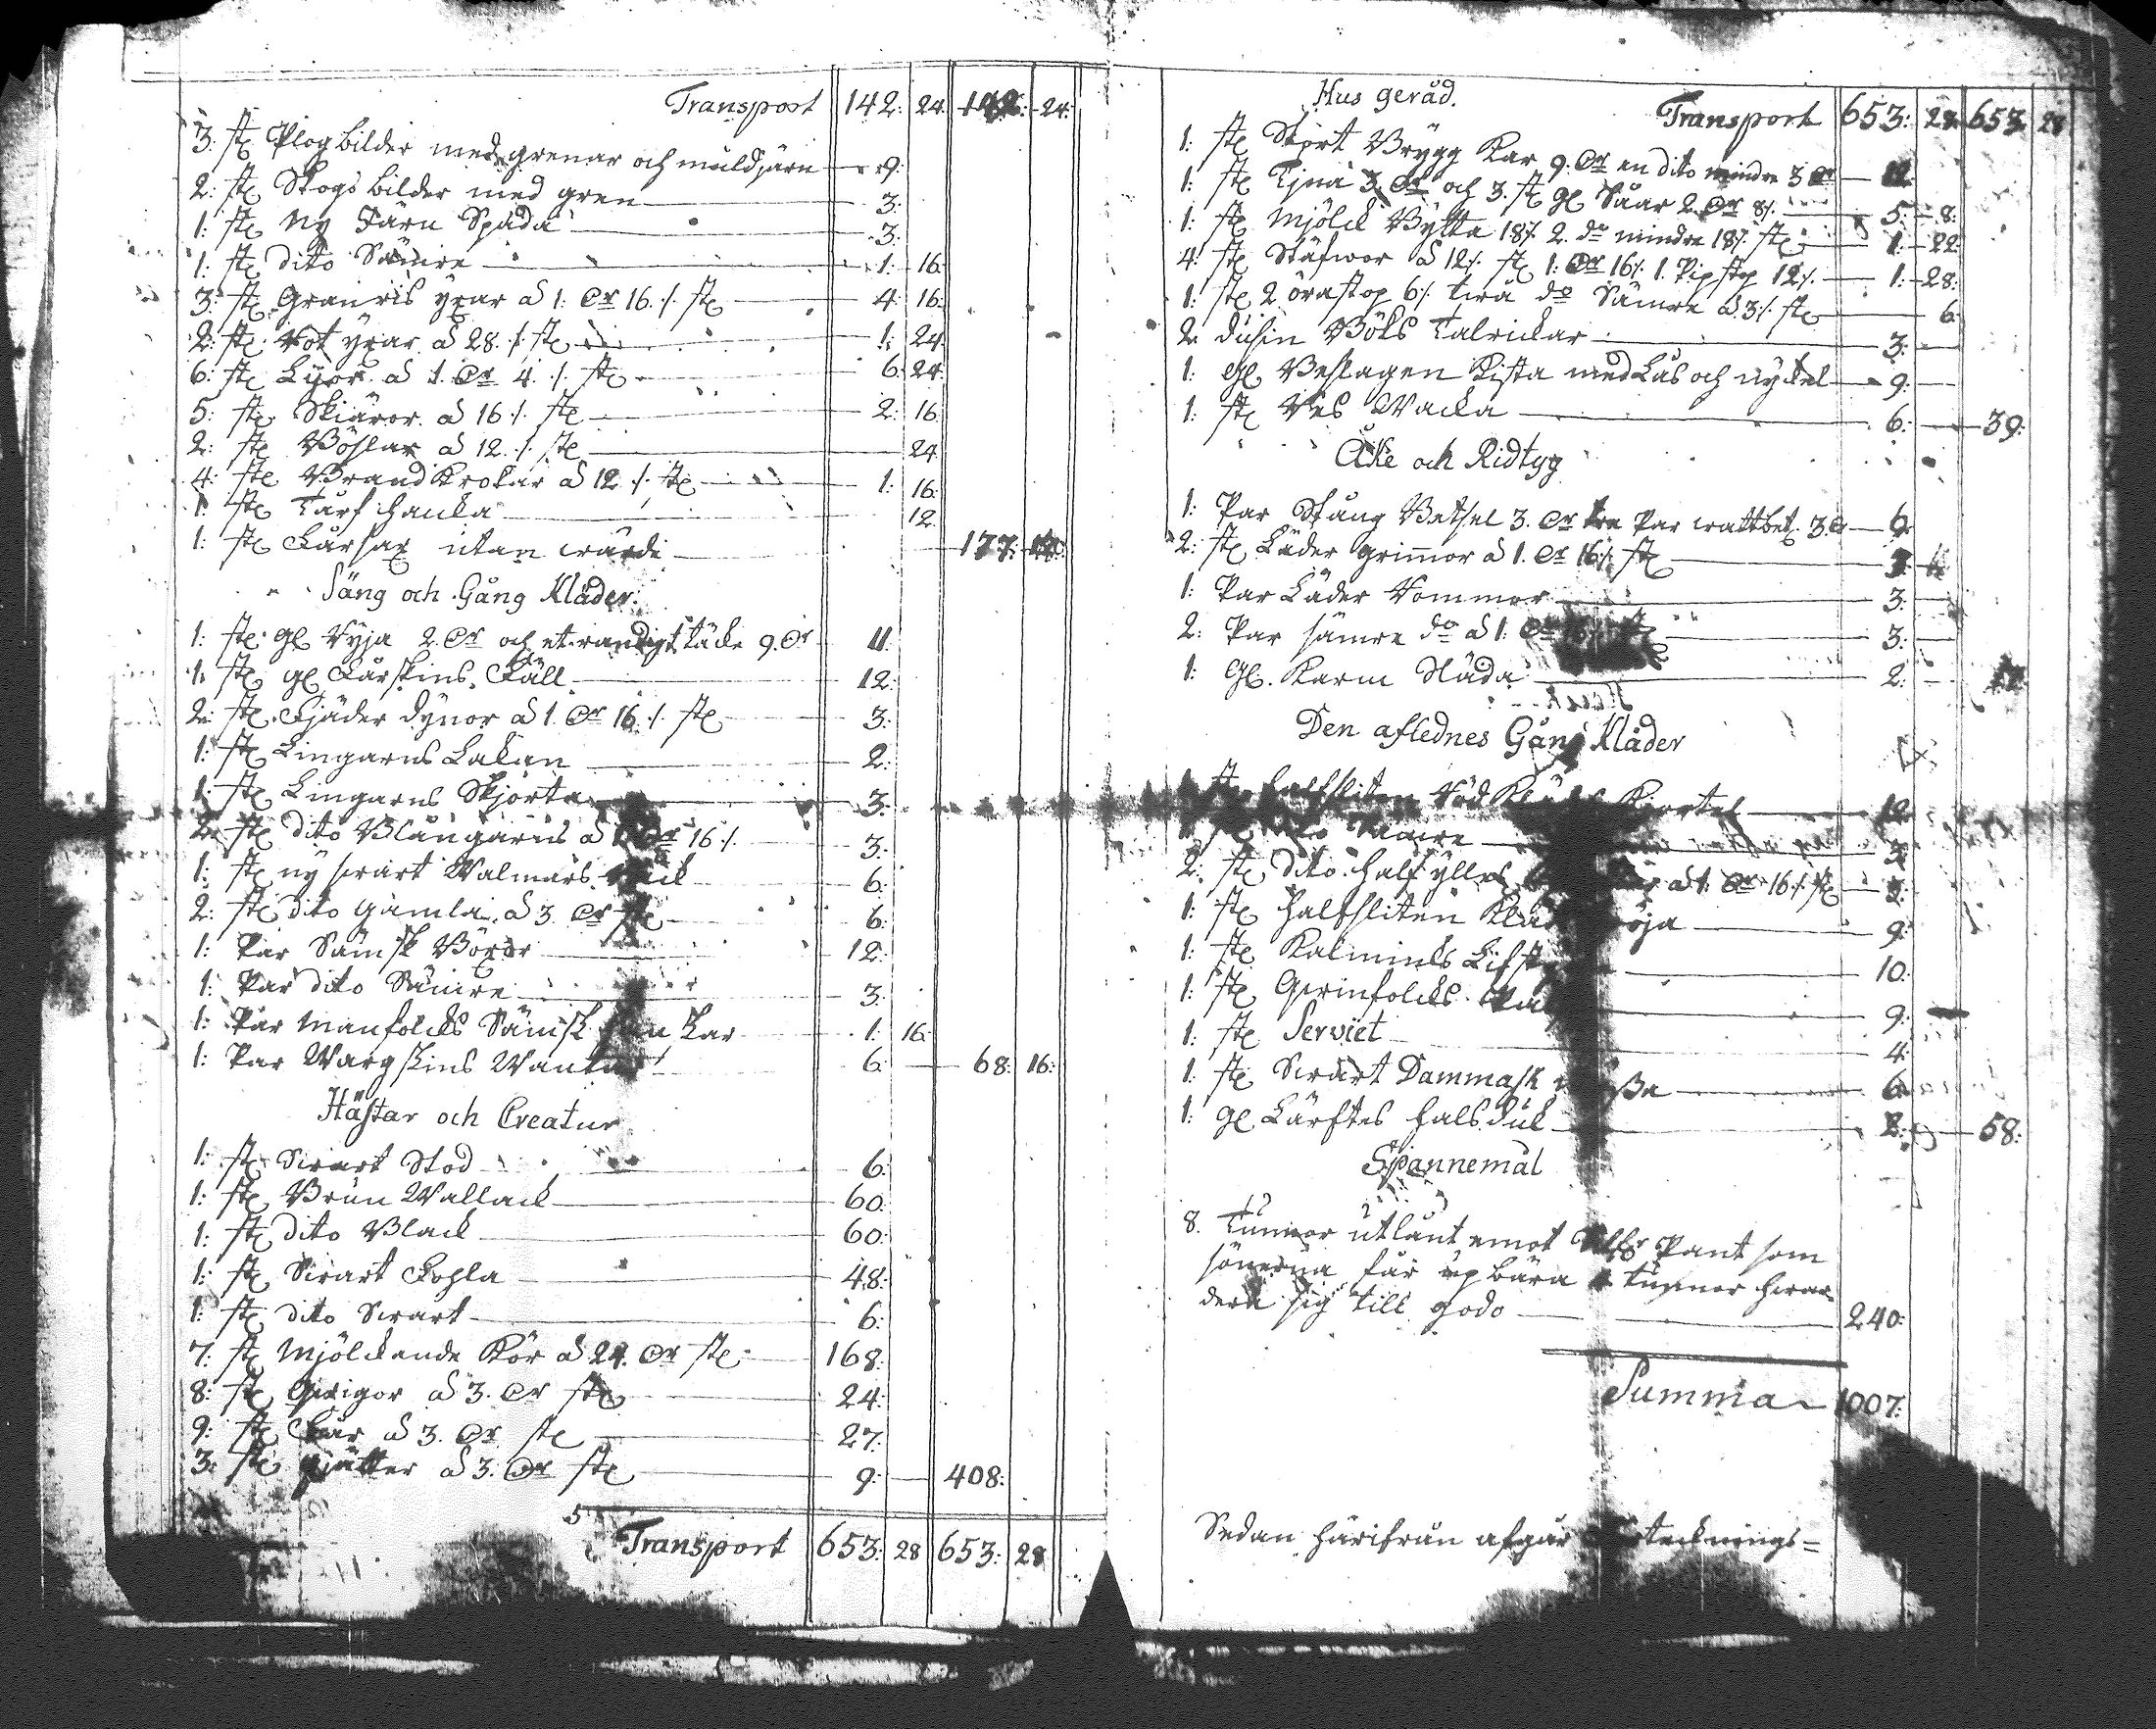 Transport 142: 24. 142: 24:
3: st Plogbilder med grenar och muldjärn 9:
2: st Skogsbilder med gren 3:
1: st Ny Järn Spada 3:
1: st dito Sämre 1: 16:
3: st Granris yxar a 1: Dr 16./. st 4: 16:
2: st Rot yxar a 28 ./. st 1: 24
6: st Lijor a 1. Dr 4. ./. st 6: 24
5: st Skiäror a 16 ./. st 2: 16
2: st Böslar a 12 ./. st 24
4: st Brand Krokar a 12 ./. st 1: 16:
1: st Turf hacka 12
1: st Fårsax utan wärde 177:
Säng och Gång Kläder:
1: st gl Ryja 2. Dr och et randigt täcke 9. Dr 11:
1: st gl Fårskins Fäll 12:
2: st Fjäder dynor a 1. Dr 16 ./. st 3:
1: st Lingarns Lakan 2:
1: st Lingarns Skjorta 3:
2: st dito Blångarns a 1 Dr 16 ./. 3:
1: st ny swart Walmars 6:
2: st dito gamla a 3 Dr st 6:
1: Par Sämsk Böxor 12:
1: Par dito Sämre 3:
1: Par manfolcks Sämsk 1: 16:
1: Par Wargskins Wantar 6: 68: 16:
Hästar och Creatur
1: st Swart Stod 6:
1: st Brun Wallack 60:
1: st dito Black 60:
1: st Swart Fohla 48:
1: st dito Swart 6:
7: st Mjölckande Kör a 24. Dr st 168:
8: st Qwigor a 3. Dr st 24:
9: st Får a 3. Dr st 27:
3: st gjätter a 3. Dr st 9: 408:
Transport 653: 28 653: 28
Hus geråd.
Transport 653: 28 653 28
1: st Stort Brygg Kar 9. Dr en dito mindre 3 Dr 12
1: st Tjna 3. Dr och 3. st gl Såar 2 Dr 8 ./. 5: 8:
1: st Mjölck Bytta 18 ./. 2. do mindre 18 ./. st 1: 22
4: st Stäfwor a 12 ./. st 1: Dr 16 ./. 1. Pip stop 12 ./. 1: 28:
1: st 2 öra stop 6 ./. twå do Sämre a 3 ./. st 6
2 dusin Böks Talrickar 3:
1: gl Beslagen Kista med Lås och nyckel 9:
1: st Wacka 6: 39:
Åke och Ridtyg
1: Par Stång Betsel 3. Dr tre Par wattbet. 3. Dr 6
2: st Läder grimmor a 1. Dr 16 ./. st 3
1: Par Läder Kommor 3:
2: Par sämre do a 1: Dr 3:
1: Gl. Karm Släda 2:
Den aflednes Gång Kläder
1 st halfsliten Röd Kjortel 12
Sämre 3:
2: st dito halfylles a 1. Dr 16 ./. st 3:
1: st halfsliten 9:
1: st Kalmincks Lifst 10:
1: st Qwinfolcks 9:
1: st Serviet 4:
1: st Swart Dammask 6:
1: gl Lärftes halsduk 2: 58:
Spannemål
8. Tunnor utlånt emot Pant som
sönerna får upbära tunnor hwar
dera sig till godo 240:
Summa 1007:
Sedan härifrån afgår tecknings=